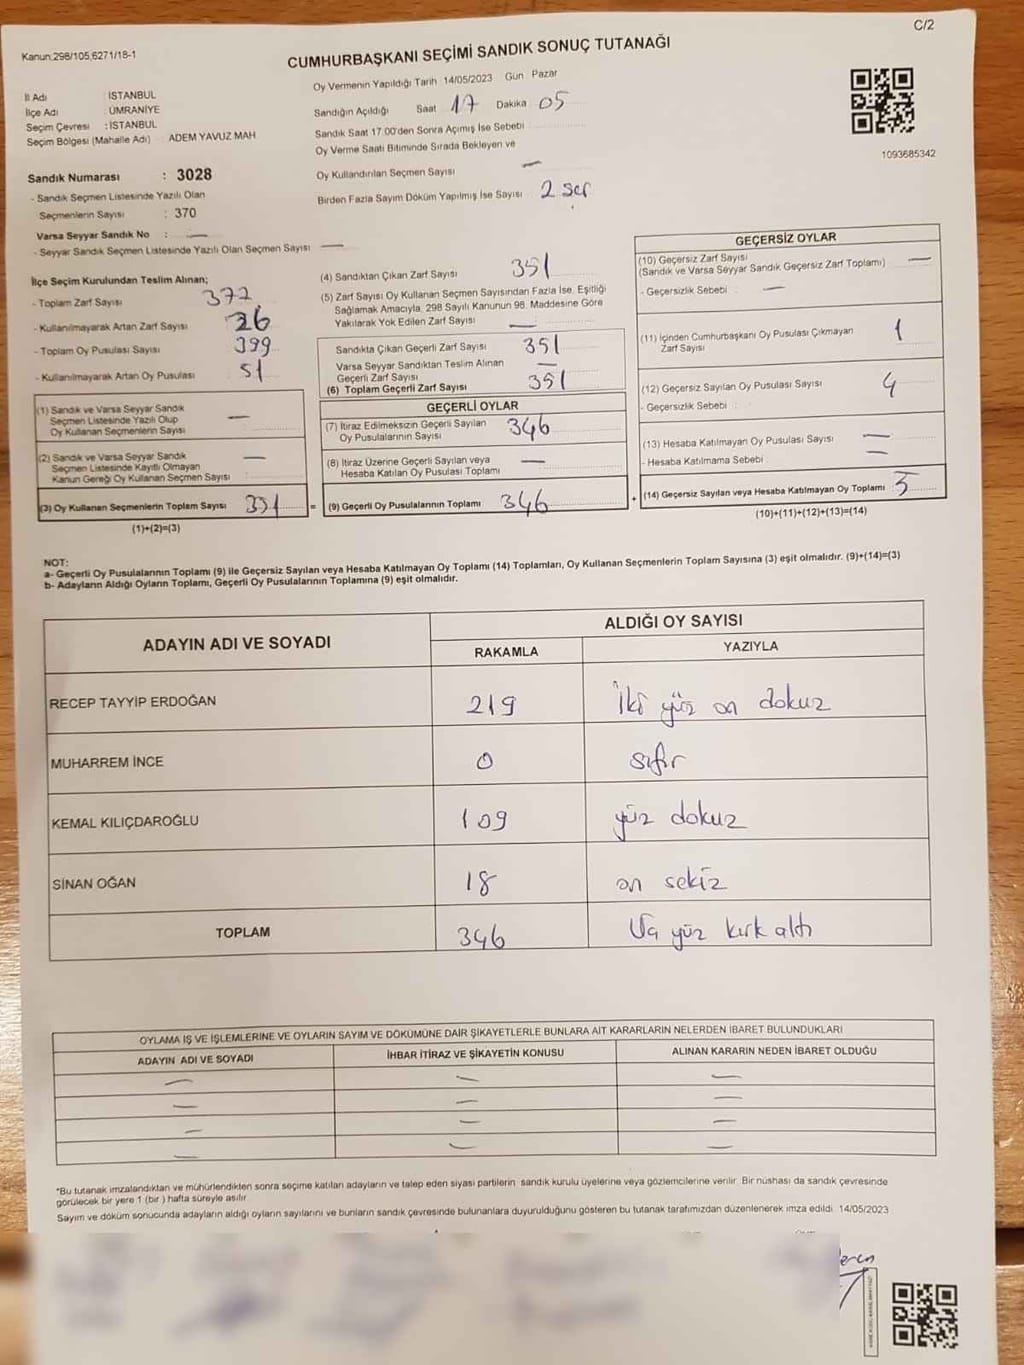 C/2
Kanun,298/105,6271/18-1
CUMHURBAŞKANI SEÇİMİ SANDIK SONUÇ TUTANAĞI
İl Adı : İSTANBUL
İlçe Adı : ÜMRANİYE
Seçim Çevresi : İSTANBUL
Seçim Bölgesi (Mahalle Adı) : ADEM YAVUZ MAH
Sandık Numarası : 3028
- Sandık Seçmen Listesinde Yazılı Olan
Seçmenlerin Sayısı : 370
Varsa Seyyar Sandık No : —
- Seyyar Sandık Seçmen Listesinde Yazılı Olan Seçmen Sayısı —
Oy Vermenin Yapıldığı Tarih 14/05/2023 Gün Pazar
Sandığın Açıldığı Saat 17 Dakika 05
Sandık Saat 17.00'den Sonra Açımış İse Sebebi
Oy Verme Saati Bitiminde Sırada Bekleyen ve
Oy Kullandırılan Seçmen Sayısı —
Birden Fazla Sayım Döküm Yapılmış İse Sayısı 2 sef
1093685342
İlçe Seçim Kurulundan Teslim Alınan;
- Toplam Zarf Sayısı 372
- Kullanılmayarak Artan Zarf Sayısı 26
- Toplam Oy Pusulası Sayısı 399
- Kullanılmayarak Artan Oy Pusulası 51
(1) Sandık ve Varsa Seyyar Sandık
Seçmen Listesinde Yazılı Olup
Oy Kullanan Seçmenlerin Sayısı —
(2) Sandık ve Varsa Seyyar Sandık
Seçmen Listesinde Kayıtlı Olmayan
Kanun Gereği Oy Kullanan Seçmen Sayısı —
(3) Oy Kullanan Seçmenlerin Toplam Sayısı 351 =
(1)+(2)=(3)
(4) Sandıktan Çıkan Zarf Sayısı 351
(5) Zarf Sayısı Oy Kullanan Seçmen Sayısından Fazla İse, Eşitliği
Sağlamak Amacıyla, 298 Sayılı Kanunun 98. Maddesine Göre
Yakılarak Yok Edilen Zarf Sayısı —
Sandıkta Çıkan Geçerli Zarf Sayısı 351
Varsa Seyyar Sandıktan Teslim Alınan
Geçerli Zarf Sayısı —
(6) Toplam Geçerli Zarf Sayısı 351
GEÇERLİ OYLAR
(7) İtiraz Edilmeksizin Geçerli Sayılan
Oy Pusulalarının Sayısı 346
(8) İtiraz Üzerine Geçerli Sayılan veya
Hesaba Katılan Oy Pusulası Toplamı —
(9) Geçerli Oy Pusulalarının Toplamı 346 +
GEÇERSİZ OYLAR
(10) Geçersiz Zarf Sayısı
(Sandık ve Varsa Seyyar Sandık Geçersiz Zarf Toplamı) —
- Geçersizlik Sebebi : —
(11) İçinden Cumhurbaşkanı Oy Pusulası Çıkmayan
Zarf Sayısı 1
(12) Geçersiz Sayılan Oy Pusulası Sayısı 4
- Geçersizlik Sebebi :
(13) Hesaba Katılmayan Oy Pusulası Sayısı —
- Hesaba Katılmama Sebebi : —
(14) Geçersiz Sayılan veya Hesaba Katılmayan Oy Toplamı : 5
(10)+(11)+(12)+(13)=(14)
NOT:
a- Geçerli Oy Pusulalarının Toplamı (9) ile Geçersiz Sayılan veya Hesaba Katılmayan Oy Toplamı (14) Toplamları, Oy Kullanan Seçmenlerin Toplam Sayısına (3) eşit olmalıdır. (9)+(14)=(3)
b- Adayların Aldığı Oyların Toplamı, Geçerli Oy Pusulalarının Toplamına (9) eşit olmalıdır.
ADAYIN ADI VE SOYADI
ALDIĞI OY SAYISI
RAKAMLA YAZIYLA
RECEP TAYYİP ERDOĞAN 219 İki yüz on dokuz
MUHARREM İNCE 0 sıfır
KEMAL KILIÇDAROĞLU 109 yüz dokuz
SİNAN OĞAN 18 on sekiz
TOPLAM 346 Üç yüz kırk altı
OYLAMA İŞ VE İŞLEMLERİNE VE OYLARIN SAYIM VE DÖKÜMÜNE DAİR ŞİKAYETLERLE BUNLARA AİT KARARLARIN NELERDEN İBARET BULUNDUKLARI
ADAYIN ADI VE SOYADI İHBAR İTİRAZ VE ŞİKAYETİN KONUSU ALINAN KARARIN NEDEN İBARET OLDUĞU
— — —
— — —
— — —
— — —
*Bu tutanak imzalandıktan ve mühürlendikten sonra seçime katılan adayların ve talep eden siyasi partilerin sandık kurulu üyelerine veya gözlemcilerine verilir. Bir nüshası da sandık çevresinde
görülecek bir yere 1 (bir ) hafta süreyle asılır.
Sayım ve döküm sonucunda adayların aldığı oyların sayılarını ve bunların sandık çevresinde bulunanlara duyurulduğunu gösteren bu tutanak tarafımızdan düzenlenerek imza edildi. 14/05/2023